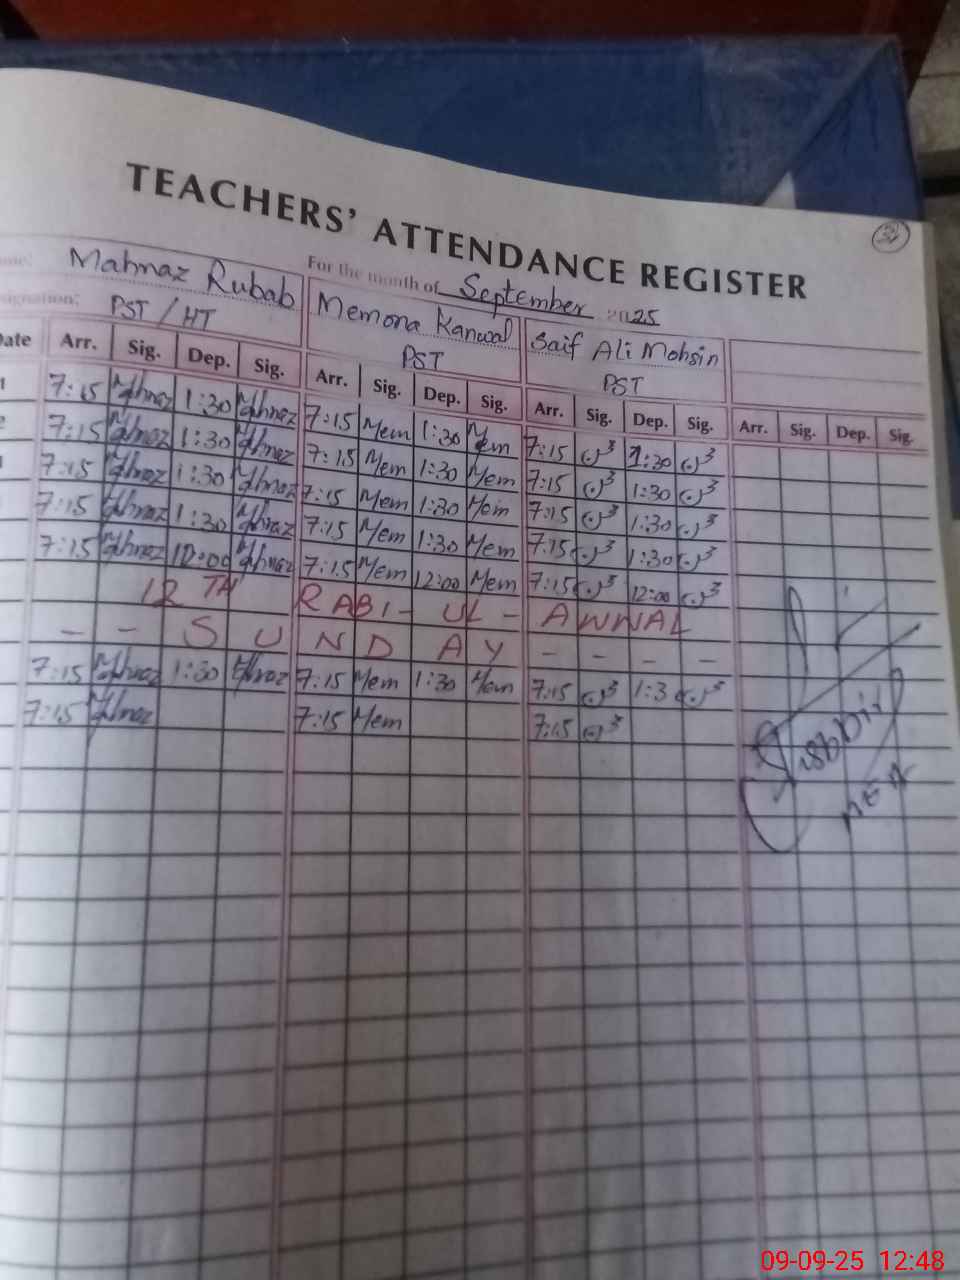 TEACHERS' ATTENDANCE REGISTER
For the month of September 2025
Mahnaz Rubab Memona Kanwal Saif Ali Mohsin
PST / HT PST PST
Arr. Sig. Dep. Sig. Arr. Sig. Dep. Sig. Arr. Sig. Dep. Sig. Arr. Sig. Dep. Sig.
7:15 Mahnaz 1:30 Mahnaz 7:15 Mem 1:30 Mem 7:15 1:30
7:15 Mahnaz 1:30 Mahnaz 7:15 Mem 1:30 Mem 7:15 1:30
7:15 Mahnaz 1:30 Mahnaz 7:15 Mem 1:30 Mem 7:15 1:30
7:15 Mahnaz 1:30 Mahnaz 7:15 Mem 1:30 Mem 7:15 1:30
7:15 Mahnaz 12:00 Mahnaz 7:15 Mem 12:00 Mem 7:15 12:00
12 TH RABI - UL - AWWAL
- - S U N D A Y - - - -
7:15 Mahnaz 1:30 Mahnaz 7:15 Mem 1:30 Mem 7:15 1:3
7:15 Mahnaz 7:15 Mem 7:15
MEA
09-09-25 12:48